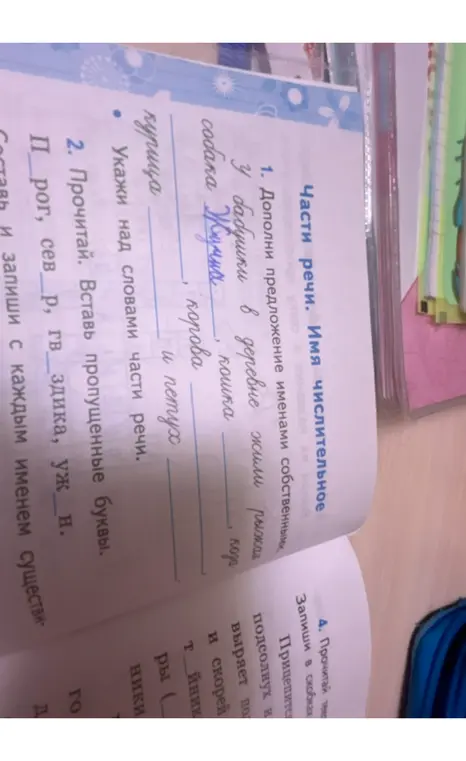 Части речи. Имя числительное
1. Дополни предложение именами собственными.
У бабушки в деревне жили рыжая
собака Жучка, кошка ______, кор
______, корова ______,
курица ______ и петух ______
• Укажи над словами части речи.
2. Прочитай. Вставь пропущенные буквы.
П_рог, сев_р, гв_здика, уж_н.
и запиши с каждым именем существи-
4. Прочитай
Запиши в скобках
Прицепит
подсолнух и
выряет по
и скорей
т_йник
ры (_
ники
го